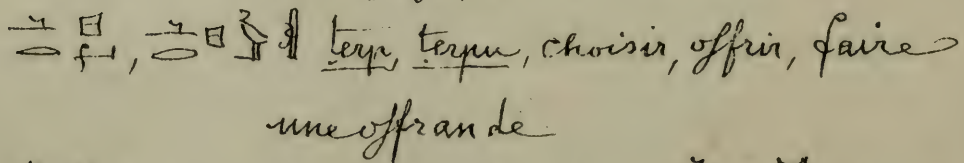 terp, terpu, choisir, offrir, faire
une offrande